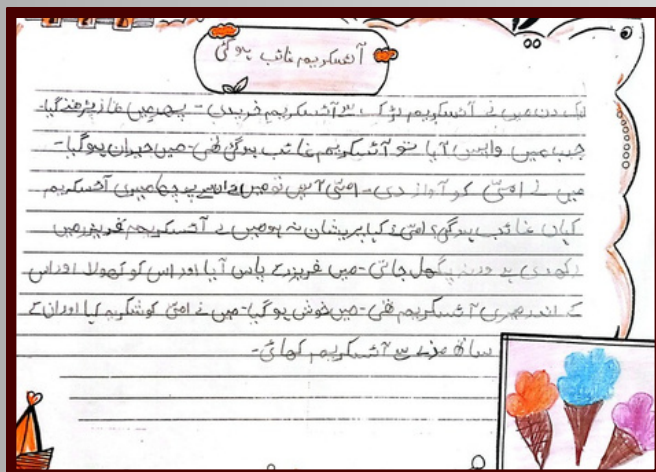 آئسکریم غائب ہوگئی
ایک دن میں نے آئسکریم ٹرک سے آئسکریم خریدی - پھر میں نماز پڑھنے گیا-
جب میں واپس آیا تو آئسکریم غائب ہوگئی تھی-میں حیران ہوگیا-
میں نے امیّ کو آواز دی- امیّ آئیں تو میں نے ان سے پوچھا میری آئسکریم
کہاں غائب ہوگئی؟ امیّ نے کہا پریشان نہ ہو میں نے آئسکریم فریزر میں
رکھ دی ہے ورنہ پگھل جاتی-میں فریزر کے پاس آیا اور اس کو کھولا اور اس
کے اندر میری آئسکریم تھی-میں خوش ہوگیا-میں نے امیّ کو شکریہ کہا اور ان کے
ساتھ مزے سے آئسکریم کھائی-